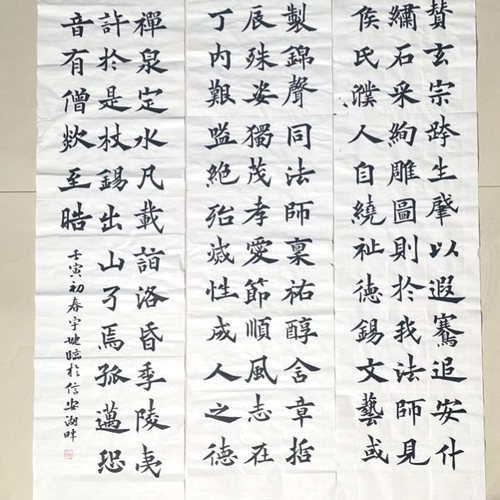 賛玄宗跨生肇以遐騫追安什
繡石采絢雕圖則於我法師見
侯氏濮人自繞祉德錫文藝或
製錦聲同法師稟祐醇舍章括
辰殊姿獨茂孝愛節順風志在
丁内艱嗌絕殆滅性成人之德
禪泉定水凡載詣洛昏季陵夷
許於是杖錫出山了焉孤邁恐
音有僧欻至皓
壬寅初春宇婕臨於信安湖畔